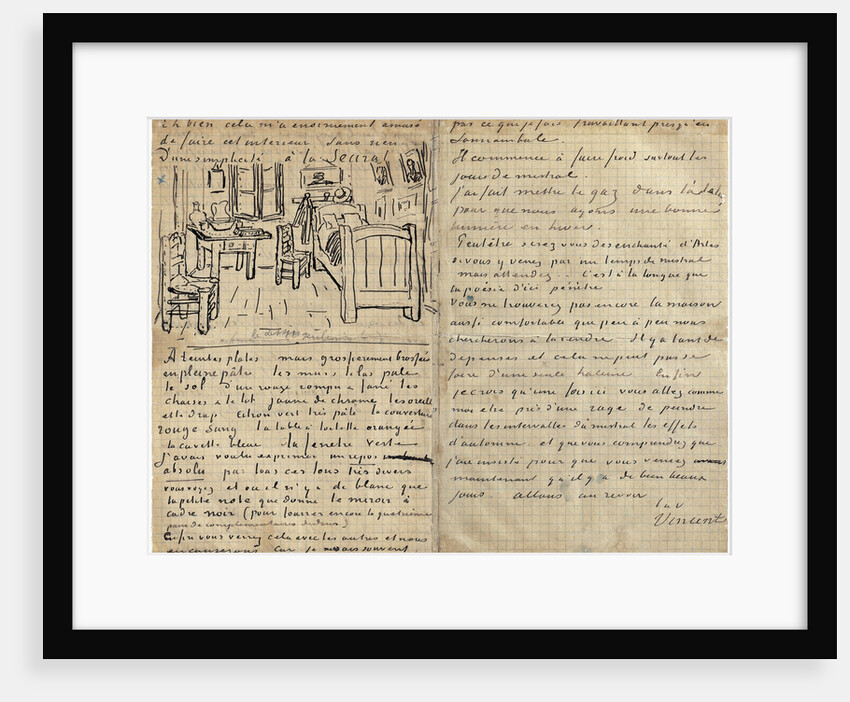 eh bien cela m'a enormement amusé
de faire cet interieur sans rien
D'une simplicité à la Seurat
A teintes plates mais grossierement brossées
en pleine pâte les murs lilas pale
le sol d'un rouge rompu & fané les
chaises & le lit jaune de chrome les oreillers
et le drap citron vert très pâle la couverture
rouge sang la table à toilette orangée
la cuvette bleue la fenetre verte
j'avais voulu exprimer un repos
absolu par tous ces tons très divers
vous voyez et ou il n'y a de blanc que
la petite note que donne le miroir à
cadre noir (pour fourrer encore la quatrième
paire de complementaires dedans.)
Enfin vous verrez cela avec les autres et nous
en causerons car je ne sais souvent
pas ce que je fais travaillant presqu'en
somnambule.
Il commence à faire froid surtout les
jours de mistral.
J'ai fait mettre le gaz dans l'atelier
pour que nous ayons une bonne
lumière en hiver.
Peutêtre serez vous desenchanté d'Arles
si vous y venez par un temps de mistral
mais attendez.. C'est à la longue que
la poésie d'ici pénètre
Vous ne trouverez pas encore la maison
aussi comfortable que peu à peu nous
chercherons à la rendre Il y a tant de
depenses et cela ne peut pas se
faire d'une seule haleine Enfin
je crois qu'une fois ici vous allez comme
moi etre pris d'une rage de peindre
dans les intervalles du mistral les effets
d'automne. et que vous comprendrez que
j'aie insisté pour que vous veniez
maintenant qu'il y a de bien beaux
jours. allons au revoir
t. à v.
Vincent